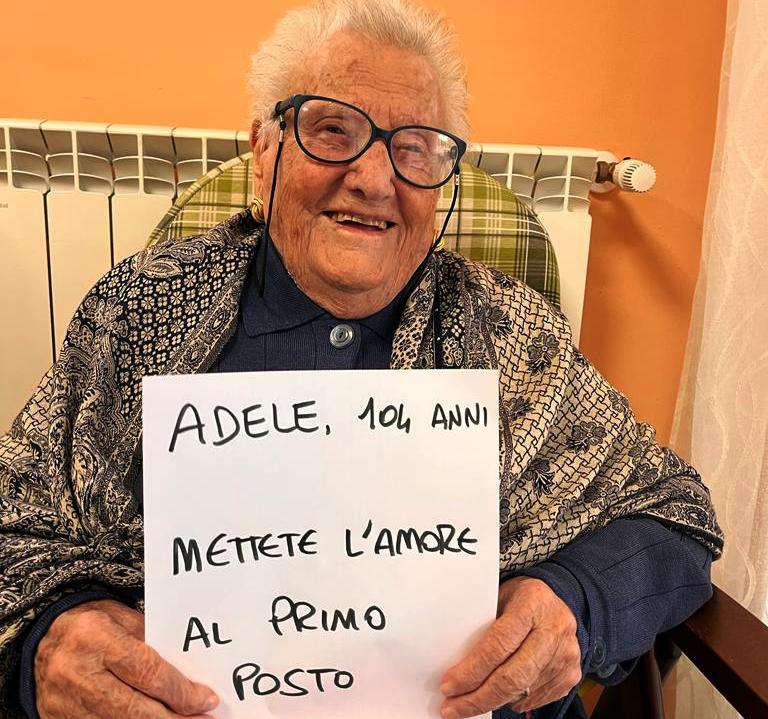 ADELE, 104 ANNI
METTETE L'AMORE
AL PRIMO
POSTO